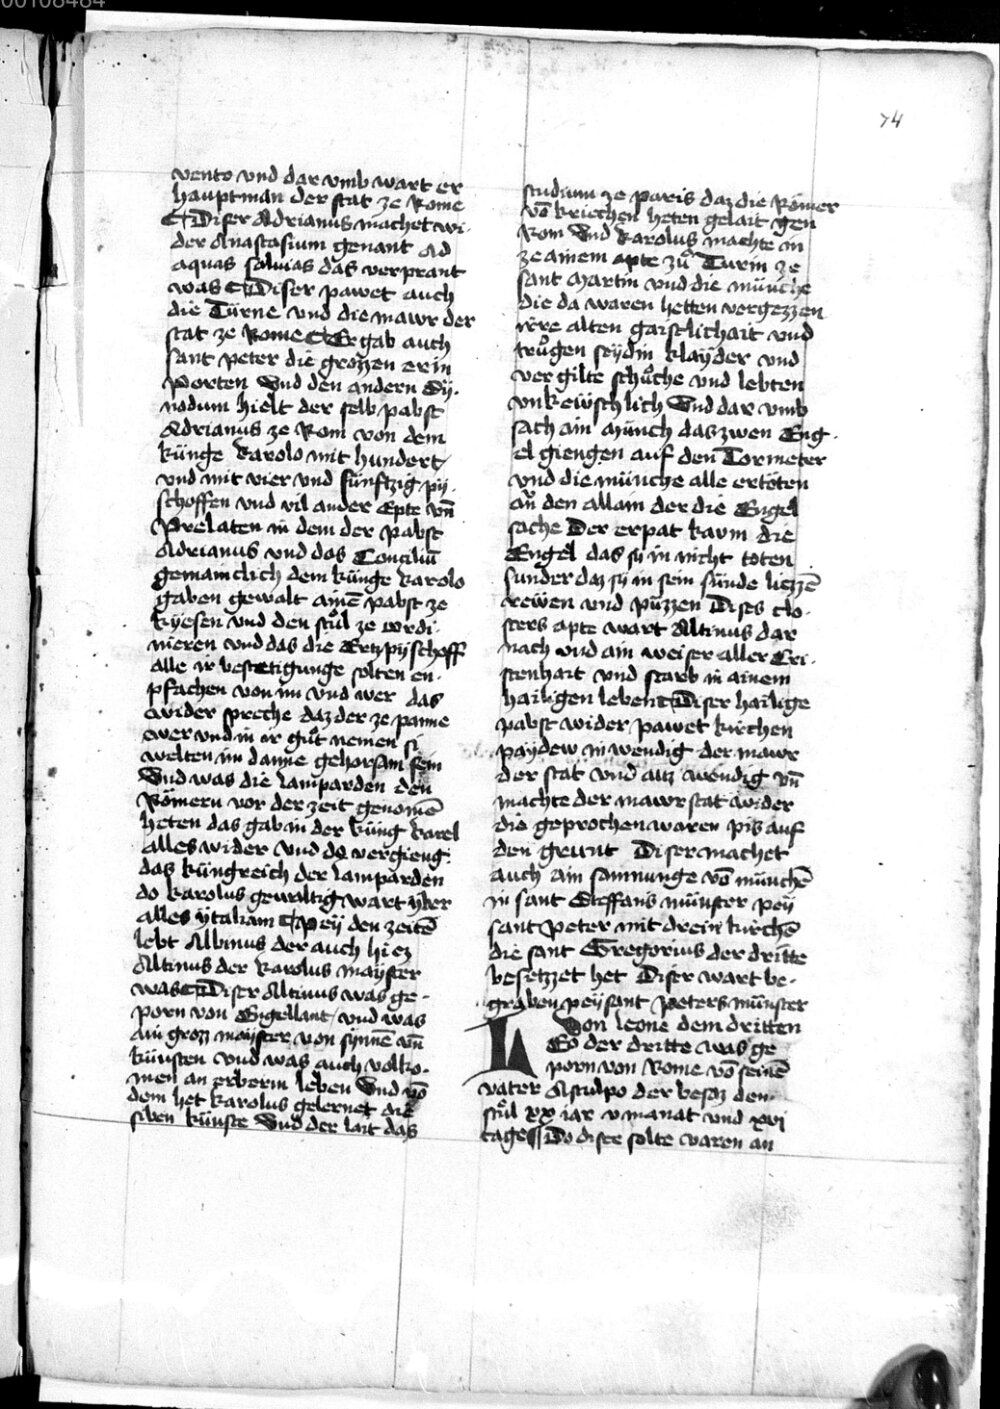 00108484
74
vento vnd dar vmb wart er
hauptman der stat ze Rome
Diser Adrianus machet wi-
der Anastasium genant Ad
aquas saluias das verprant
was Diser pawet auch
die Türne vnd die mawr der
stat ze Rome Er gab auch
sant peter die grozzen erin
Porten Vnd den andern Sy-
nodum hielt der selb pabst
Adrianus ze Rom von dem
künge karolo mit hundert
vnd mit vier vnd fünftzig py-
schoffen vnd vil ander Epte vn̄
Prelaten in dem der pabst
Adrianus vnd das Conciliū
gemainclich dem künge karolo
gaben gewalt ainē pabst ze
kyesen vnd den stůl ze ordi-
nieren vnd das die Ertzpyschoff
alle ir bestetigunge solten en-
pfachen von im vnd wer das
wider spreche daz der ze panne
wer vnd in ir gůt nemen si
welten im danne gehorsam sein
Vnd was die lamparden den
Römern vor der zeit genomē
heten das gab in der küng karel
alles wider vnd do vergieng
das küngreich der lamparden
do karolus gewaltig wart yber
alles ytaliam Pey den zeitē
lebt Albinus der auch hiez
Altinus der karolus mayster
was Diser Altinus was ge-
porn von Engellant vnd was
Ain groz mayster von synnē vn̄
künsten vnd was auch volko-
men an erberm leben Vnd vō
dem het karolus gelernet die
siben künste Vnd der lait das
studium ze paris daz die Römer
vō kriechen heten gelait gen
Rom Vnd karolus machte in
ze ainem apte zů Turin ze
sant Martin vnd die müniche
die da waren hetten vergezzen
irre alten gaistlichait vnd
trůgen seydin klayder vnd
vergilte schůche vnd lebten
vnkewschlich Vnd dar vmb
sach ain münch das zwen Eng-
el giengen auf den Tormeter
vnd die müniche alle ertöten
an den allain der die Engel
sache Der erpat kaum die
Engel das sy in nicht toten
sunder daz sy in sein sünde liezzē
rewen vnd püzzen Dises clo-
sters apte wart Altinus dar
nach vnd ain weiser aller Cri-
stenhait vnd starb in ainem
hailigen leben Diser hailige
pabst wider pawet kirchen
payden inwendig der mawr
der stat vnd auz wendig vn̄
machte der mawr stat wider
die geprochen waren piz auf
den grunt Diser machet
auch ain samnunge vō münichē
in sant Steffans münster pey
sant peter mit drein kirchē
die sant Gregorius der dritte
besetzzet het Diser wart be-
graben pey sant Peters münster
Von leone dem dritten
LEo der dritte was ge
porn von Rome vō seinē
vater Astulpo der besaz den
stůl xx iar v manat vnd xvi
tage Do diser solte varen an